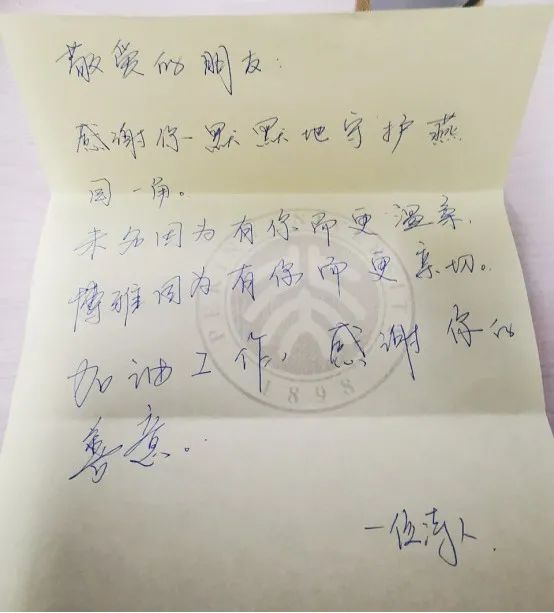 敬爱的朋友:
感谢你一默默地守护燕
园一角。
未名因为有你而更温柔,
博雅因为有你而更亲切。
加油工作,感谢你的
善意。
一位
PEKING UNIVERSITY
1898